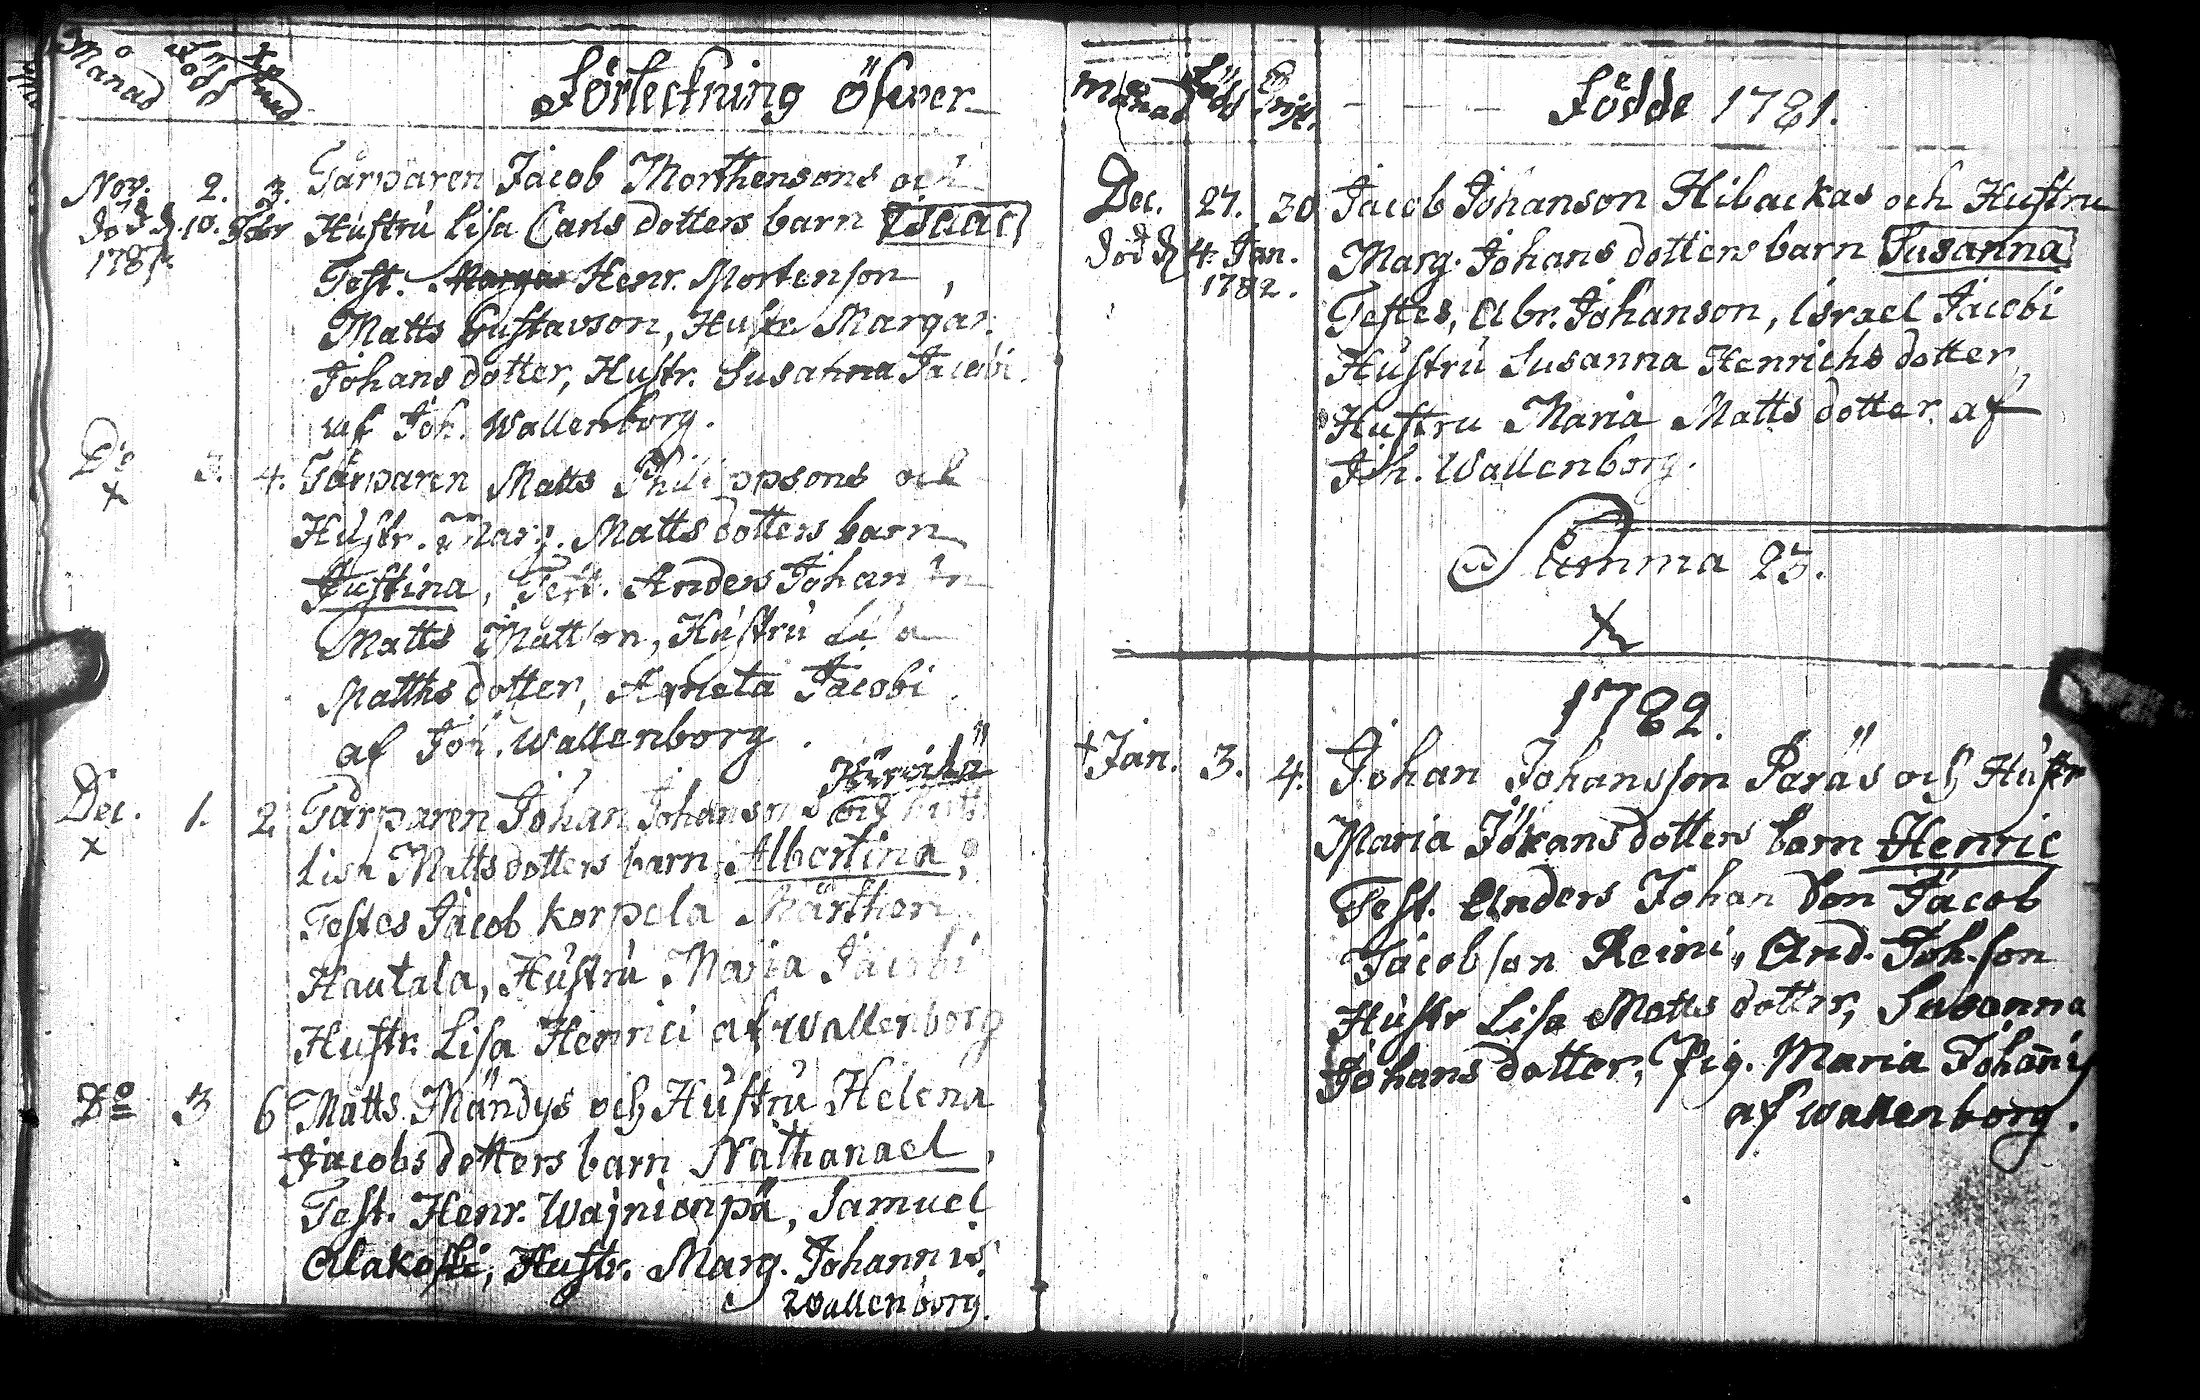 Månad Född Xstnad Förteckning öfwer
Nov. 2. 3. Torparen Jacob Morthensons och
död d. 10. Hustru Lisa Carls dotters barn Isaac
1781. Test. Henr. Mortenson,
Matts Gustavson, Hustr Margar.
Johans dotter, Hustr. Susanna Jacobi
af Joh. Wallenborg.
Do 3. 4. Torparen Matts Philippsons och
x Hustr. Marg. Matts dotters barn
Justina, Test. Anders Johan
Matts Mattson, Hustru Lisa
Matths dotter, Agneta Jacobi
af Joh. Wallenborg.
Dec. 1. 2 Torparen Johan Johansons och
x Lisa Matts dotters barn Albertina,
Testes Jacob Korpela Marthen
Hautala, Hustru Maria Jacobi
Hustr. Lisa Henrici af Wallenborg
Do 3 6 Matts Mändys och Hustru Helena
Jacobs dotters barn Nathanael,
Test. Henr. Wajnionpä, Samuel
Alakoski, Hustr. Marg. Johannis.
Wallenborg.
Månad Född Christ. Födde 1781.
Dec. 27. 30 Jacob Johanson Hibackas och Hustru
död d 4 Jan. Marg. Johans dotters barn Susanna
1782. Testes, Abr. Johanson, Israel Jacobi
Hustru Susanna Henrichs dotter,
Hustru Maria Matts dotter af
Joh. Wallenborg.
Summa 25.
x
1782.
†Jan. 3. 4. Johan Johansson Peräs och Hustr
Maria Johansdotters barn Henric
Test. Anders Johan Son Jacob
Jacobson Reini, And. Joh.son
Hustr Lisa Matts dotter, Susanna
Johans dotter, Pig. Maria Johannis
af Wallenborg.